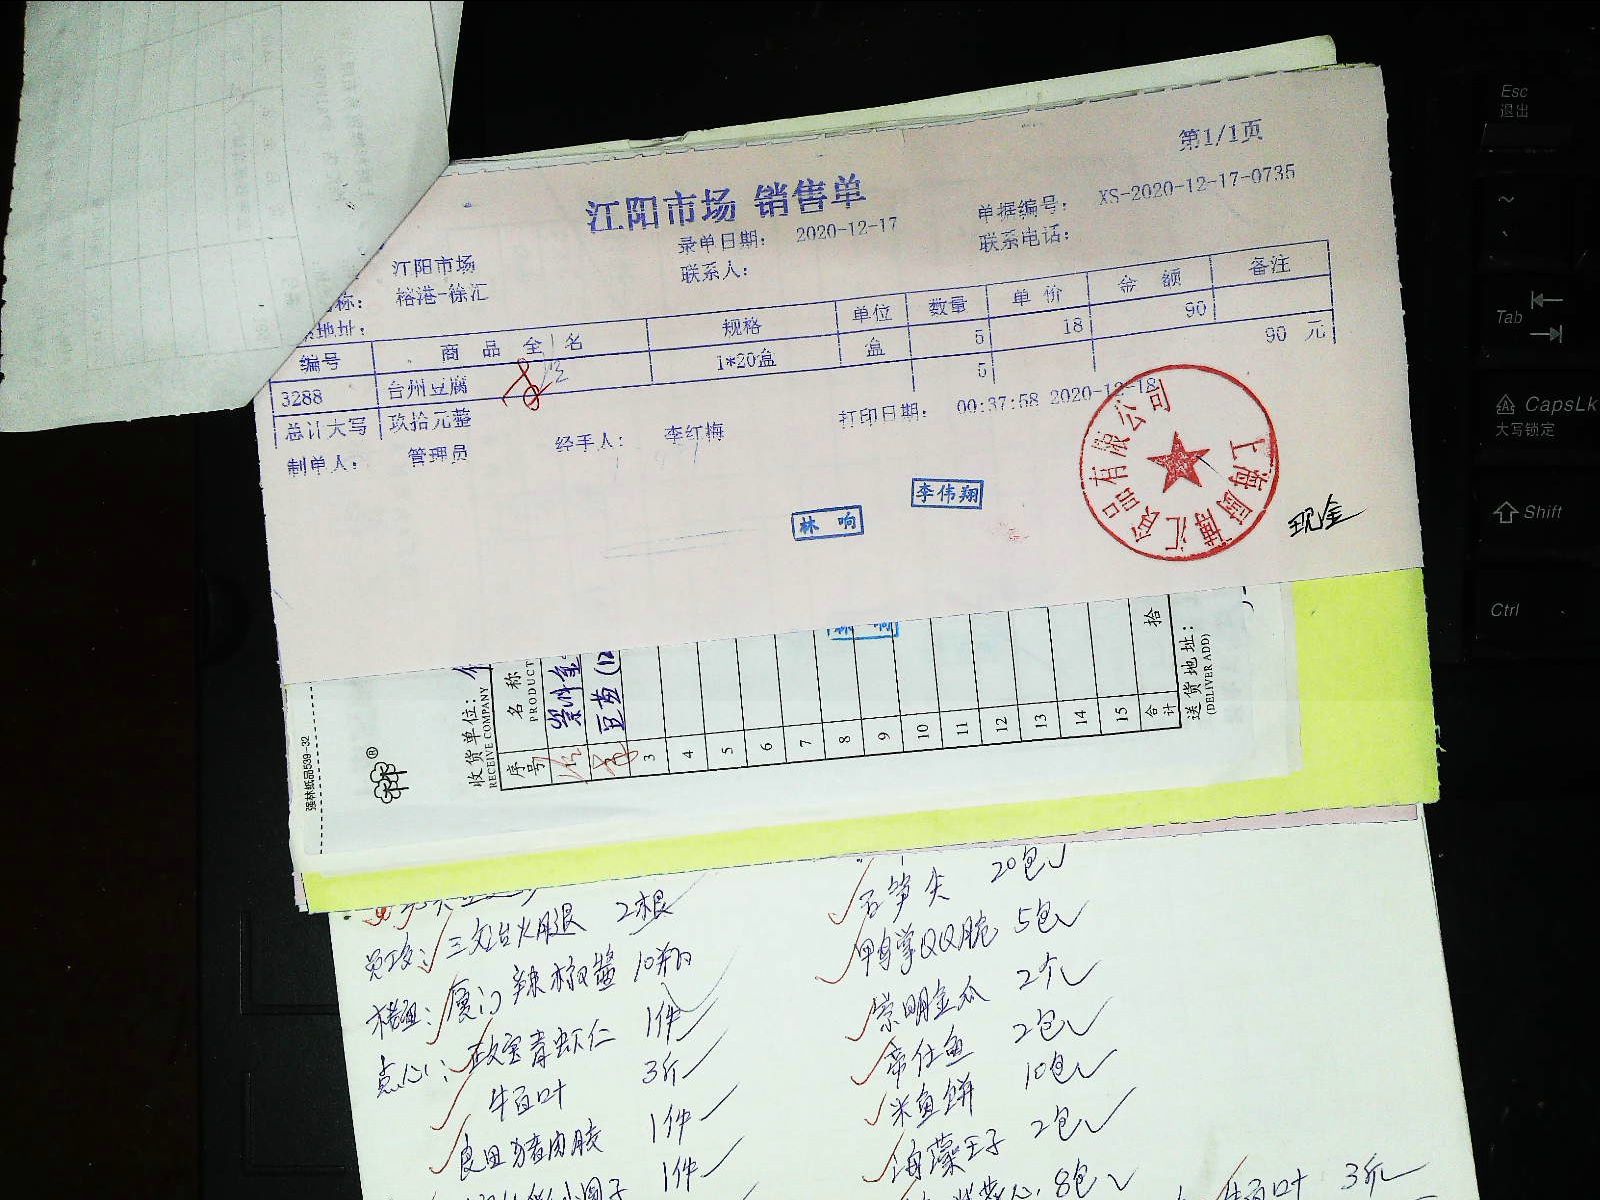 第1/1页
江阳市场 销售单
录单日期: 2020-12-17
单据编号: XS-2020-12-17-0735
江阳市场
联系人:
联系电话:
称: 榕港-徐汇
地址:
编号 商品全名 规格 单位 数量 单价 金额 备注
3288 台州豆腐 1*20盒 盒 5 18 90
总计大写 玖拾元整 5 90 元
制单人: 管理员 经手人: 李红梅 打印日期: 00:37:58 2020-12-18
林响
李伟翔
上海厨博汇食品有限公司
现金
强林纸品539-32
收货单位:
RECEIVE COMPANY
序号
名称
PRODUCT
3
4
5
6
7
8
9
10
11
12
13
14
15
合计
拾
送货地址:
(DELIVER ADD)
三文治火腿 2根
厦门辣椒酱 10瓶
点心: 青虾仁 1件
牛百叶 3斤
良田猪肉胶 1件
1件
石笋尖 20包
鸭掌QQ脆 5包
崇明金瓜 2个
帝仕鱼 2包
米鱼饼 10包
海藻王子 2包
8包
牛百叶 3斤
Esc
退出
~
Tab
CapsLk
大写锁定
Shift
Ctrl